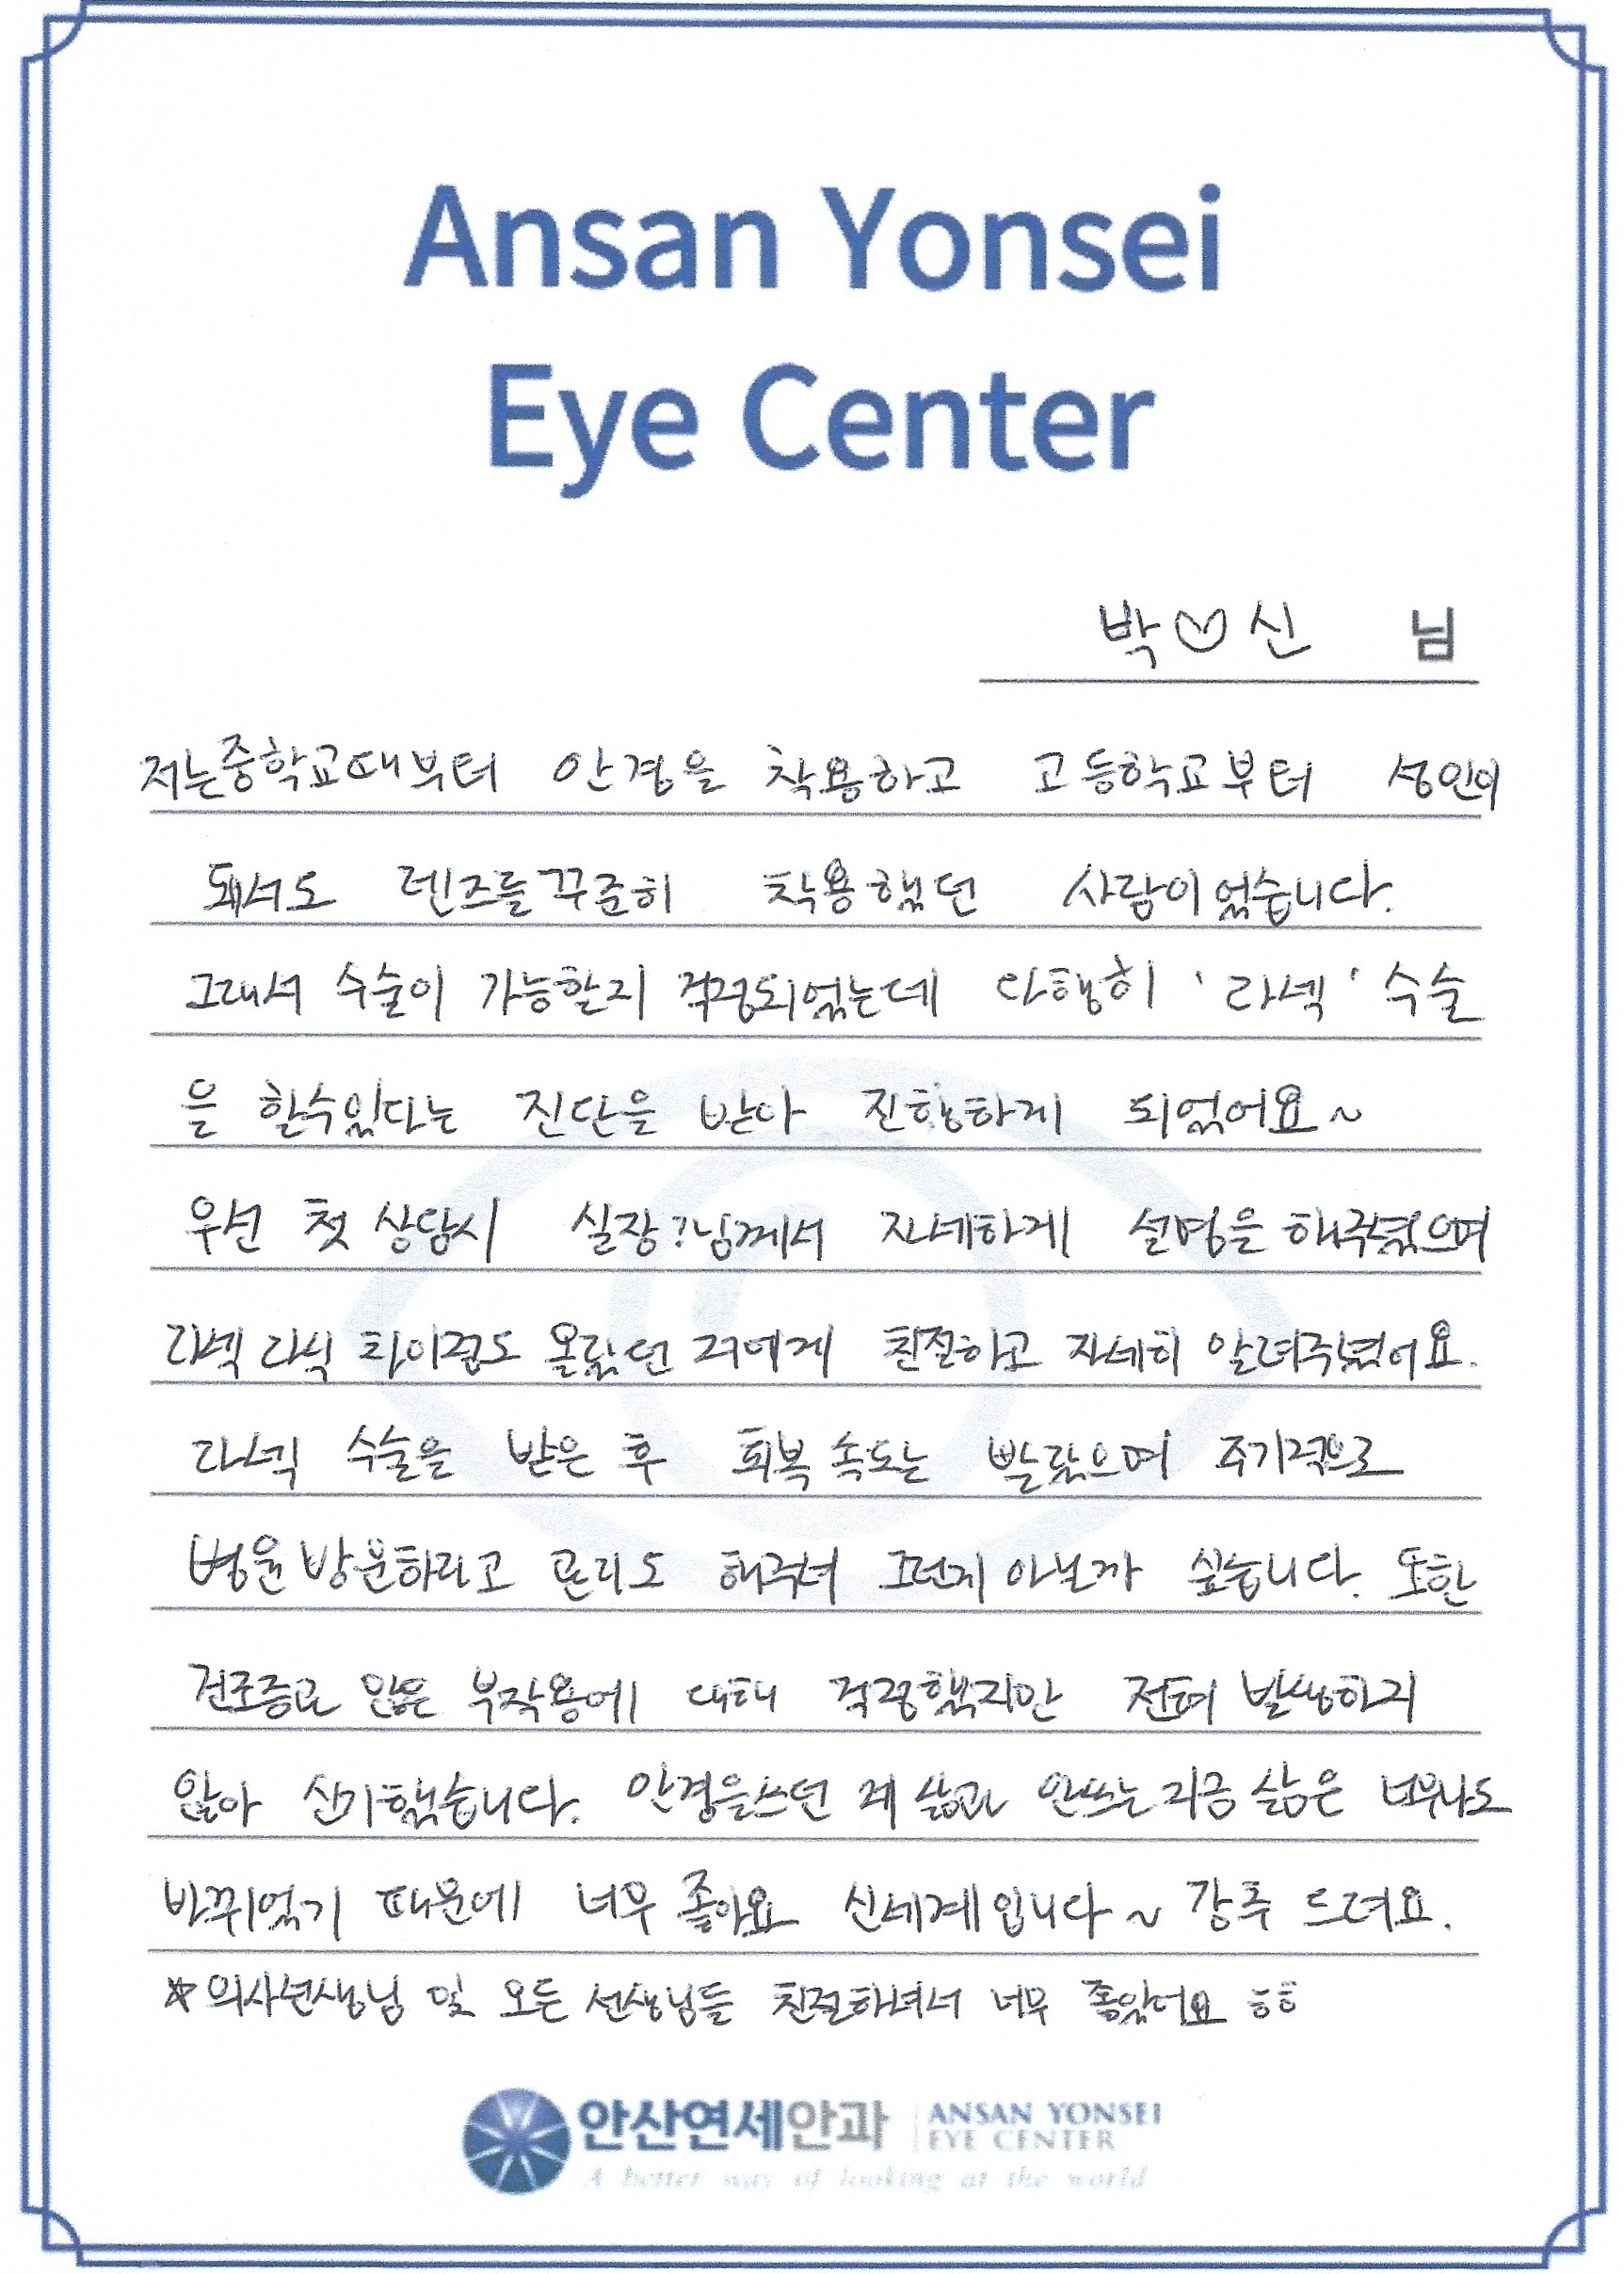 Ansan Yonsei
Eye Center
박♡신 님
저는중학교때부터 안경을 착용하고 고등학교부터 성인이
돼서도 렌즈를꾸준히 착용했던 사람이었습니다.
그래서 수술이 가능할지 걱정되었는데 다행히 '라섹' 수술
을 할수있다는 진단을 받아 진행하게 되었어요~
우선 첫 상담시 실장?님께서 자세하게 설명을 해주셨으며
라섹 라식 차이점도 몰랐던 저에게 친절하고 자세히 알려주셨어요.
라섹 수술을 받은 후 회복 속도는 빨랐으며 주기적으로
병원방문하라고 관리도 해주셔 그런지 아닐까 싶습니다. 또한
건조증과 같은 부작용에 대해 걱정했지만 전혀 발생하지
않아 신기했습니다. 안경을쓰던 제 삶과 안쓰는 지금 삶은 너무나도
바뀌었기 때문에 너무 좋아요 신세계입니다~ 강추 드려요.
☆의사선생님 및 모든 선생님들 친절하셔서 너무 좋았어요 ㅎㅎ
안산연세안과 ANSAN YONSEI
EYE CENTER
A better way of looking at the world